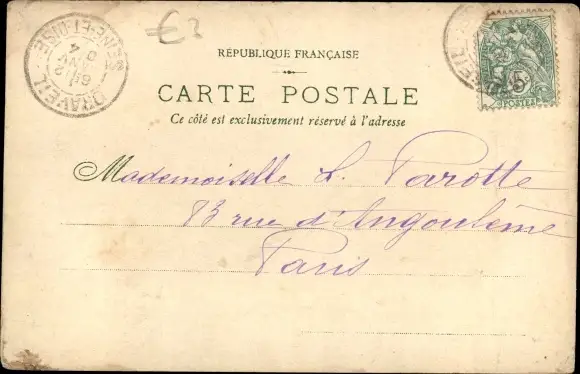 RÉPUBLIQUE FRANÇAISE
CARTE POSTALE
Ce côté est exclusivement réservé à l'adresse
Mademoiselle L. Parotte
13 rue d'Angoulême
Paris
DRAVEIL
SEINE-ET-OISE
5
POSTES